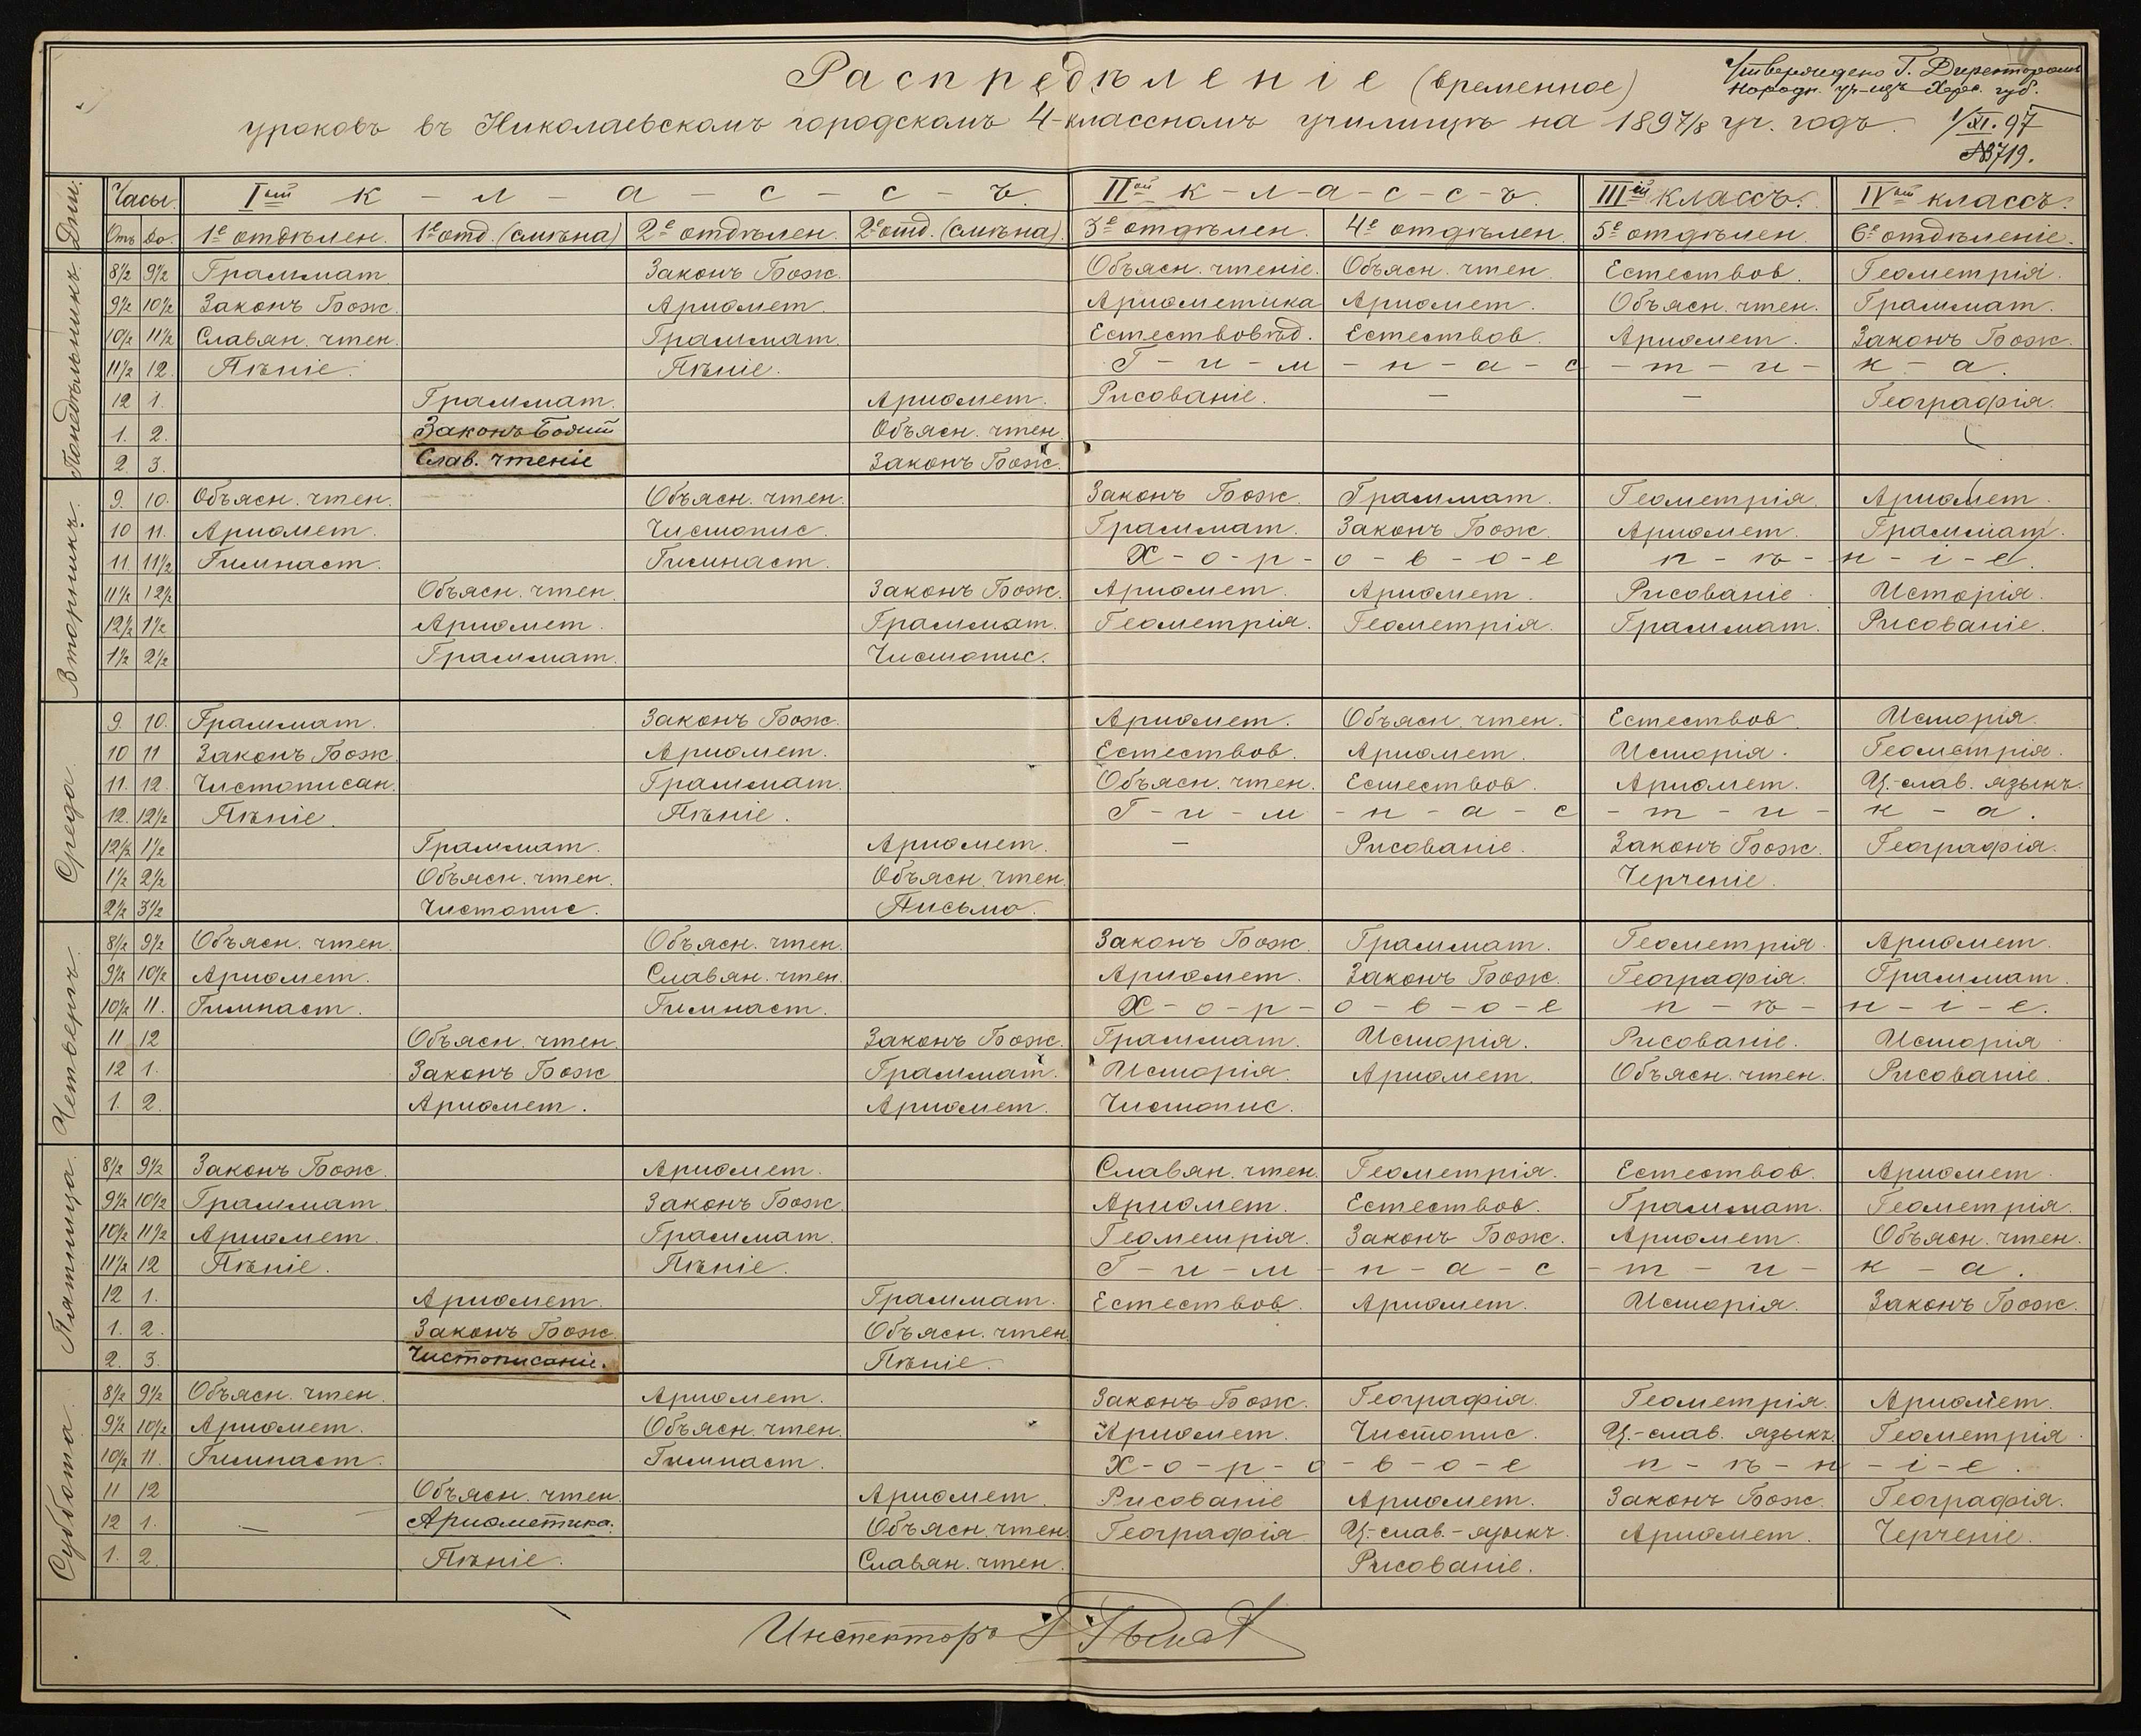 Распредѣленіе (временное)
уроковъ въ Николаевскомъ городскомъ 4-классномъ училищѣ на 1897/8 уч. годъ.
Утверждено Г. Директоромъ
Народн. уч-щъ Херс. губ.
1/XI.97
№3719.
Дни. Часы. Iый к-л-а-с-с-ъ. IIой к-л-а-с-с-ъ. IIIій классъ. IVый классъ.
Отъ До. 1е отдѣлен. 1е отд. (смѣна) 2е отдѣлен. 2е отд. (смѣна). 3е отдѣлен. 4е отдѣлен. 5е отдѣлен. 6е отдѣленіе.
Понедѣльникъ.
8½ 9½ Граммат. Законъ Бож. Объясн. чтеніе. Объясн. чтен. Естествов. Геометрія.
9½ 10½ Законъ Бож. Ариѳмет. Ариѳметика Ариѳмет. Объясн. чтен. Граммат.
10½ 11½ Славян. чтен. Граммат. Естествовѣд. Естествов. Ариѳмет. Законъ Бож.
11½ 12. Пѣніе. Пѣніе. Г-и-м-н-а-с-т-и-к-а.
12 1. Граммат. Ариѳмет. Рисованіе. — — Географія.
1. 2. Законъ Божій Объясн. чтен.
2. 3. Слав. чтеніе Законъ Бож.
Вторникъ.
9. 10. Объясн. чтен. Объясн. чтен. Законъ Бож. Граммат. Геометрія. Ариѳмет.
10 11. Ариѳмет. Чистопис. Граммат. Законъ Бож. Ариѳмет. Граммат.
11. 11½ Гимнаст. Гимнаст. Х-о-р-о-в-о-е п-ѣ-н-і-е.
11½ 12½ Объясн. чтен. Законъ Бож. Ариѳмет. Ариѳмет. Рисованіе. Исторія.
12½ 1½ Ариѳмет. Граммат. Геометрія. Геометрія. Граммат. Рисованіе.
1½ 2½ Граммат. Чистопис.
Среда.
9. 10. Граммат. Законъ Бож. Ариѳмет. Объясн. чтен. Естествов. Исторія.
10 11 Законъ Бож. Ариѳмет. Естествов. Ариѳмет. Исторія. Геометрія.
11. 12. Чистописан. Граммат. Объясн. чтен. Естествов. Ариѳмет. Ц.-слав. языкъ.
12. 12½ Пѣніе. Пѣніе. Г-и-м-н-а-с-т-и-к-а.
12½ 1½ Граммат. Ариѳмет. — Рисованіе. Законъ Бож. Географія.
1½ 2½ Объясн. чтен. Объясн. чтен. Черченіе.
2½ 3½ Чистопис. Письмо.
Четвергъ.
8½ 9½ Объясн. чтен. Объясн. чтен. Законъ Бож. Граммат. Геометрія. Ариѳмет.
9½ 10½ Ариѳмет. Славян. чтен. Ариѳмет. Законъ Бож. Географія. Граммат.
10½ 11. Гимнаст. Гимнаст. Х-о-р-о-в-о-е п-ѣ-н-і-е.
11 12 Объясн. чтен. Законъ Бож. Граммат. Исторія. Рисованіе. Исторія
12 1. Законъ Бож Граммат. Исторія. Ариѳмет. Объясн. чтен. Рисованіе.
1. 2. Ариѳмет. Ариѳмет. Чистопис.
Пятница.
8½ 9½ Законъ Бож. Ариѳмет. Славян. чтен. Геометрія. Естествов. Ариѳмет.
9½ 10½ Граммат. Законъ Бож. Ариѳмет. Естествов. Граммат. Геометрія.
10½ 11½ Ариѳмет. Граммат. Геометрія. Законъ Бож. Ариѳмет. Объясн. чтен.
11½ 12 Пѣніе. Пѣніе. Г-и-м-н-а-с-т-и-к-а.
12 1. Ариѳмет. Граммат. Естествов. Ариѳмет. Исторія. Законъ Бож.
1. 2. Законъ Бож. Объясн. чтен.
2. 3. Чистописаніе. Пѣніе.
Суббота.
8½ 9½ Объясн. чтен. Ариѳмет. Законъ Бож. Географія. Геометрія. Ариѳмет.
9½ 10½ Ариѳмет. Объясн. чтен. Ариѳмет. Чистопис. Ц.-слав. языкъ. Геометрія.
10½ 11. Гимнаст. Гимнаст. Х-о-р-о-в-о-е п-ѣ-н-і-е.
11 12 Объясн. чтен. Ариѳмет. Рисованіе Ариѳмет. Законъ Бож. Географія.
12 1. — Ариѳметика. Объясн. чтен. Географія Ц.-слав.-языкъ. Ариѳмет. Черченіе.
1. 2. Пѣніе. Славян. чтен. Рисованіе.
Инспекторъ